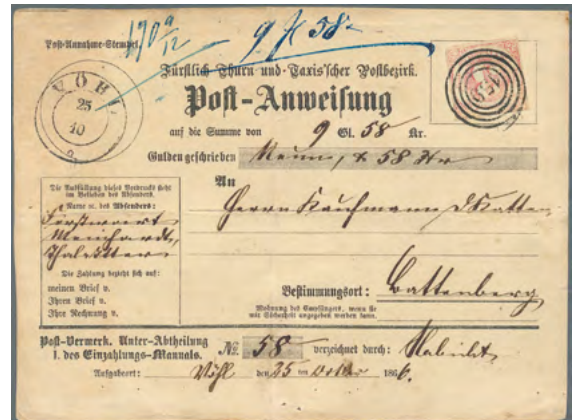 Post-Annahme-Stempel.
9 f 58
VÖHL
25
10
Fürstlich Thurn und Taxis'scher Postbezirk.
Post-Anweisung
auf die Summe von 9 Gl. 58 Kr.
Gulden geschrieben Neun, & 58 Xr
An
Die Ausfüllung dieses Vordrucks steht
im Belieben des Absenders.
Name ꝛc. des Absenders:
Herrn Kaufmann
Die Zahlung bezieht sich auf:
meinen Brief v.
Ihren Brief v.
Ihre Rechnung v.
Bestimmungsort: Battenberg
Wohnung des Empfängers, wenn sie
mit Sicherheit angegeben werden kann.
Post-Vermerk. Unter-Abtheilung
I. des Einzahlungs-Manuals. No. 58 verzeichnet durch:
Aufgabeort: Vöhl den 25 ten October 1866.